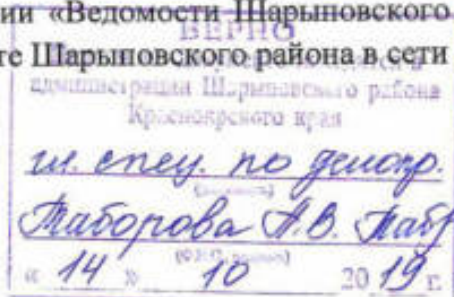 ии «Ведомости Шарыповского
те Шарыповского района в сети
ВЕРНО
администрации Шарыповского района
Красноярского края
гл. спец. по делопр.
Таборова А.В. Таб
« 14 » 10 2019 г.